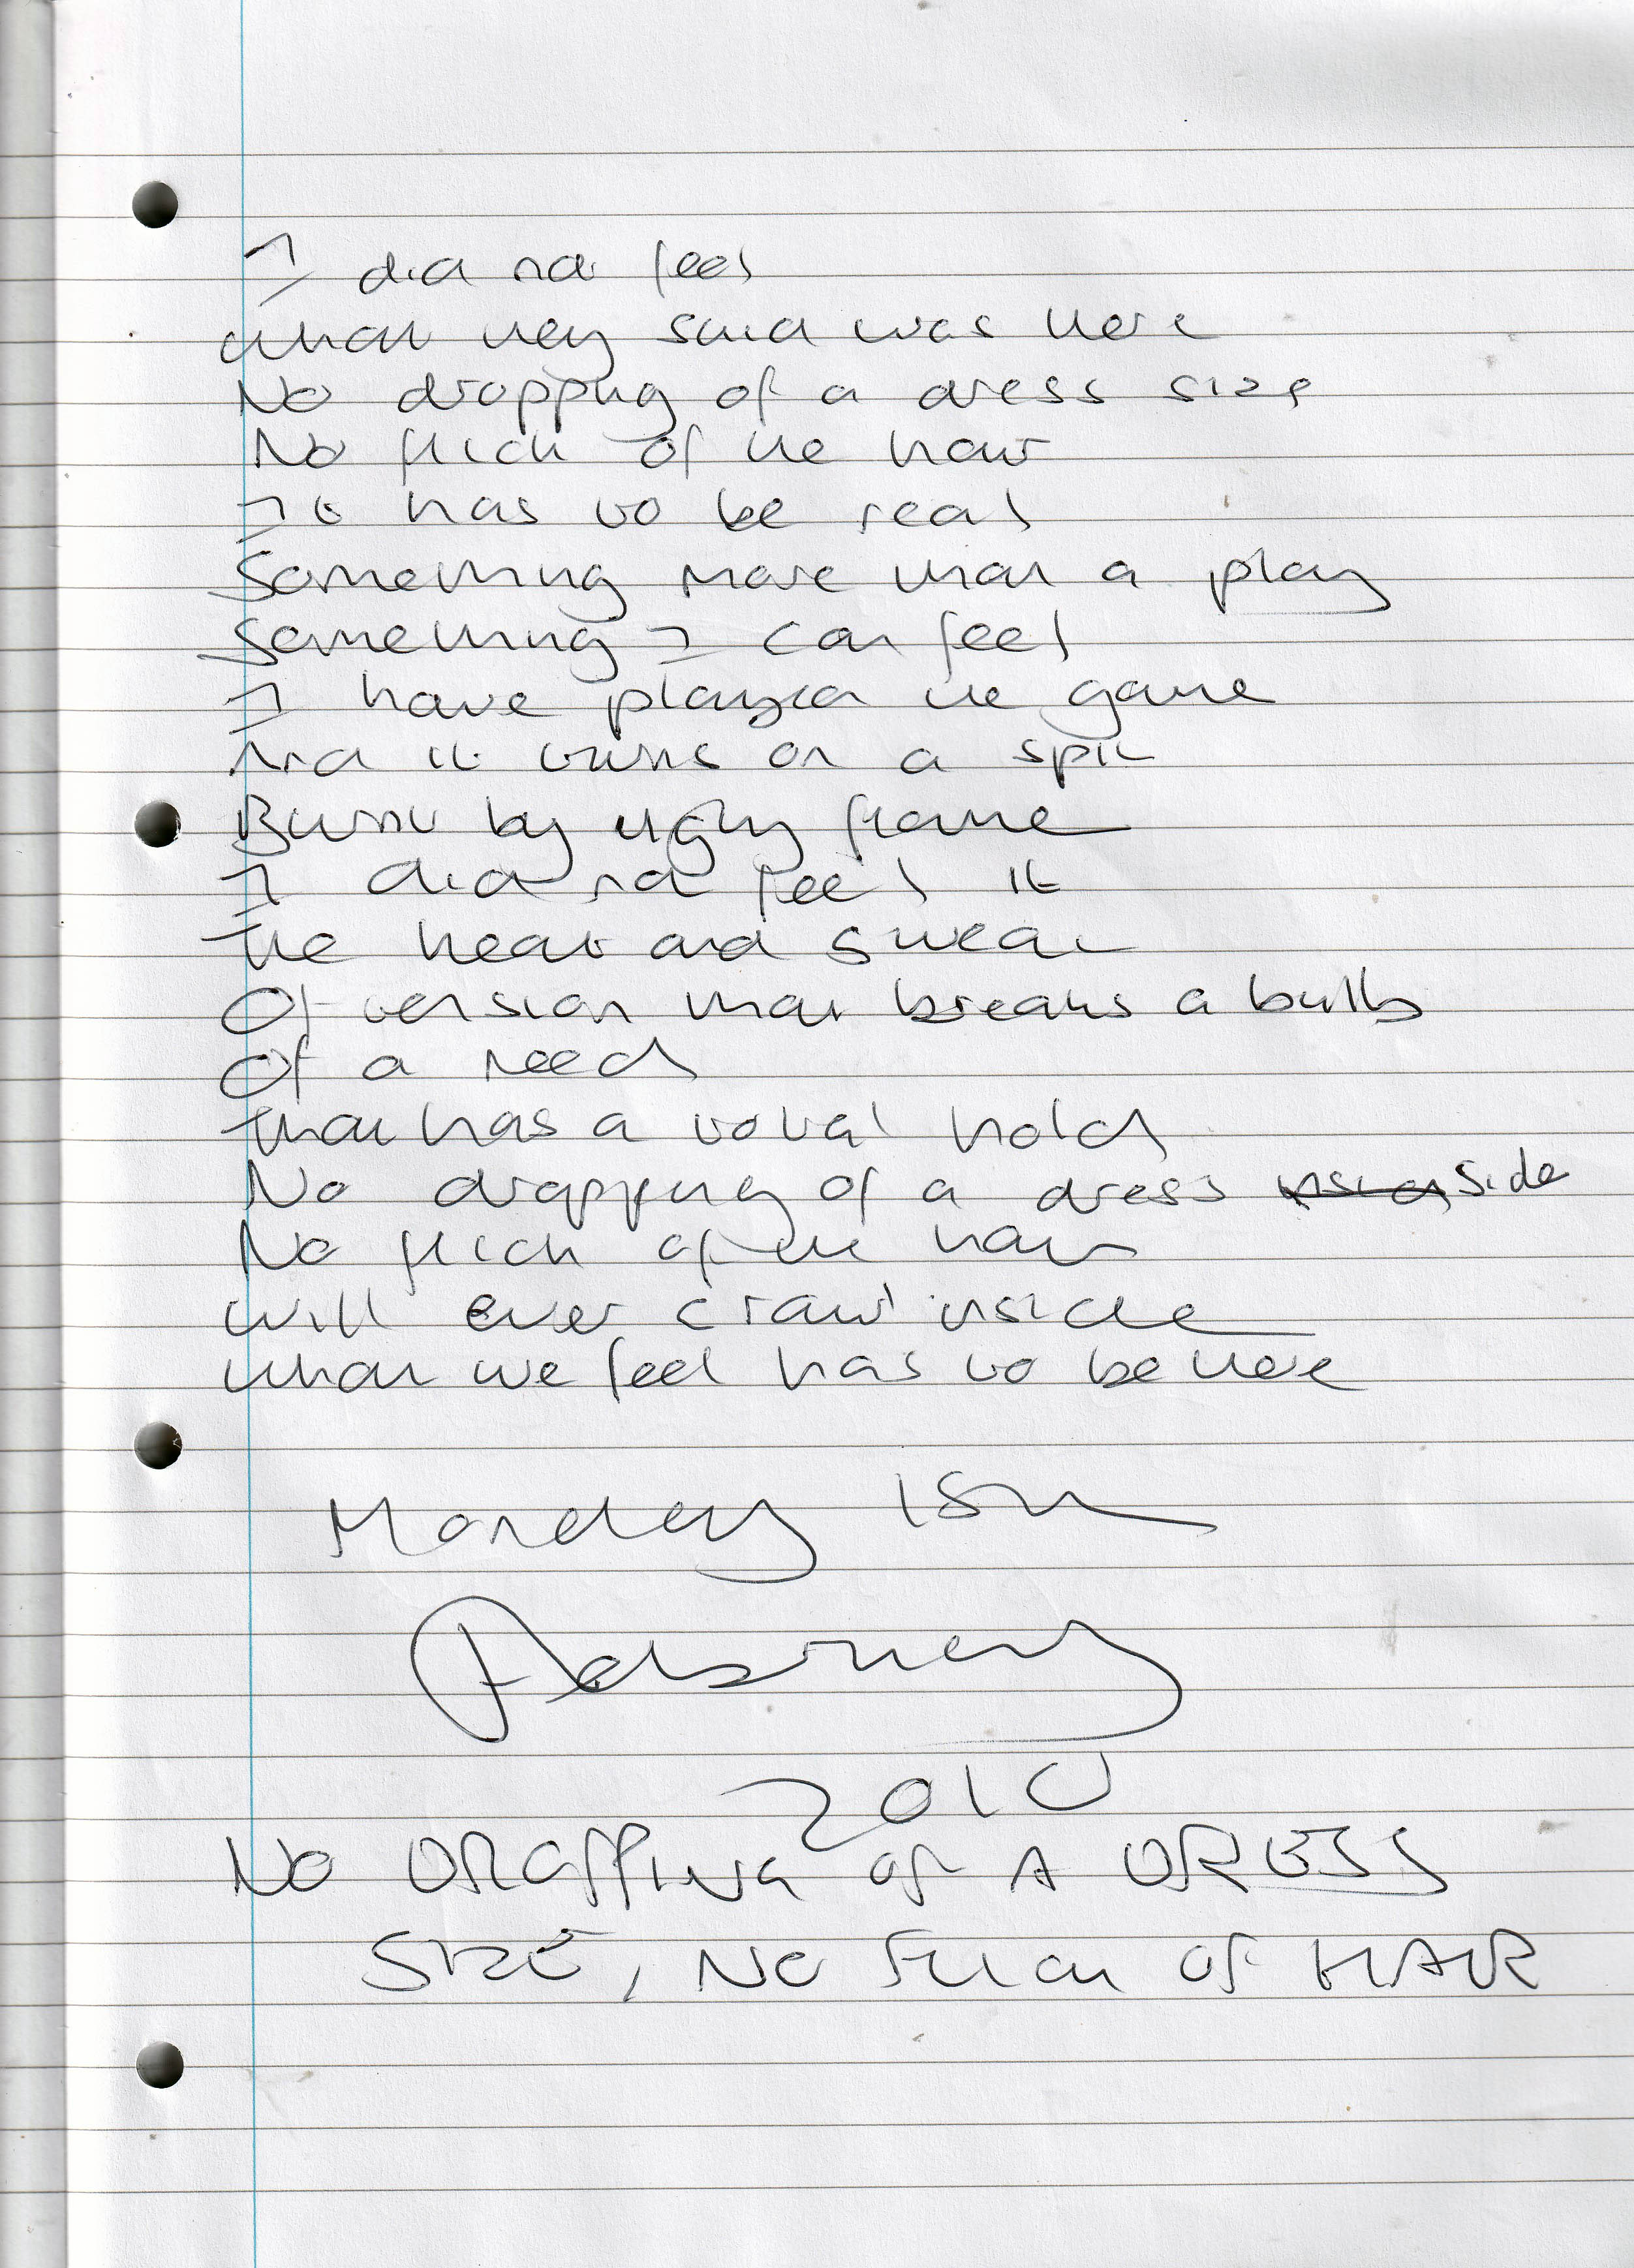 I did not feel
what they said was there
No dropping of a dress size
No flick of the hair
It has to be real
Something more than a play
Something I can feel
I have played the game
And it turns on a spit
Burnt by ugly flame
I did not feel it
The heat and sweat
Of tension that breaks a bulb
Of a need
That has a total hold
No dropping of a dress side
No flick of the hair
will ever crawl inside
what we feel has to be there
Monday 15th
February
2010
NO DROPPING OF A DRESS
SIZE, NO FLICK OF HAIR